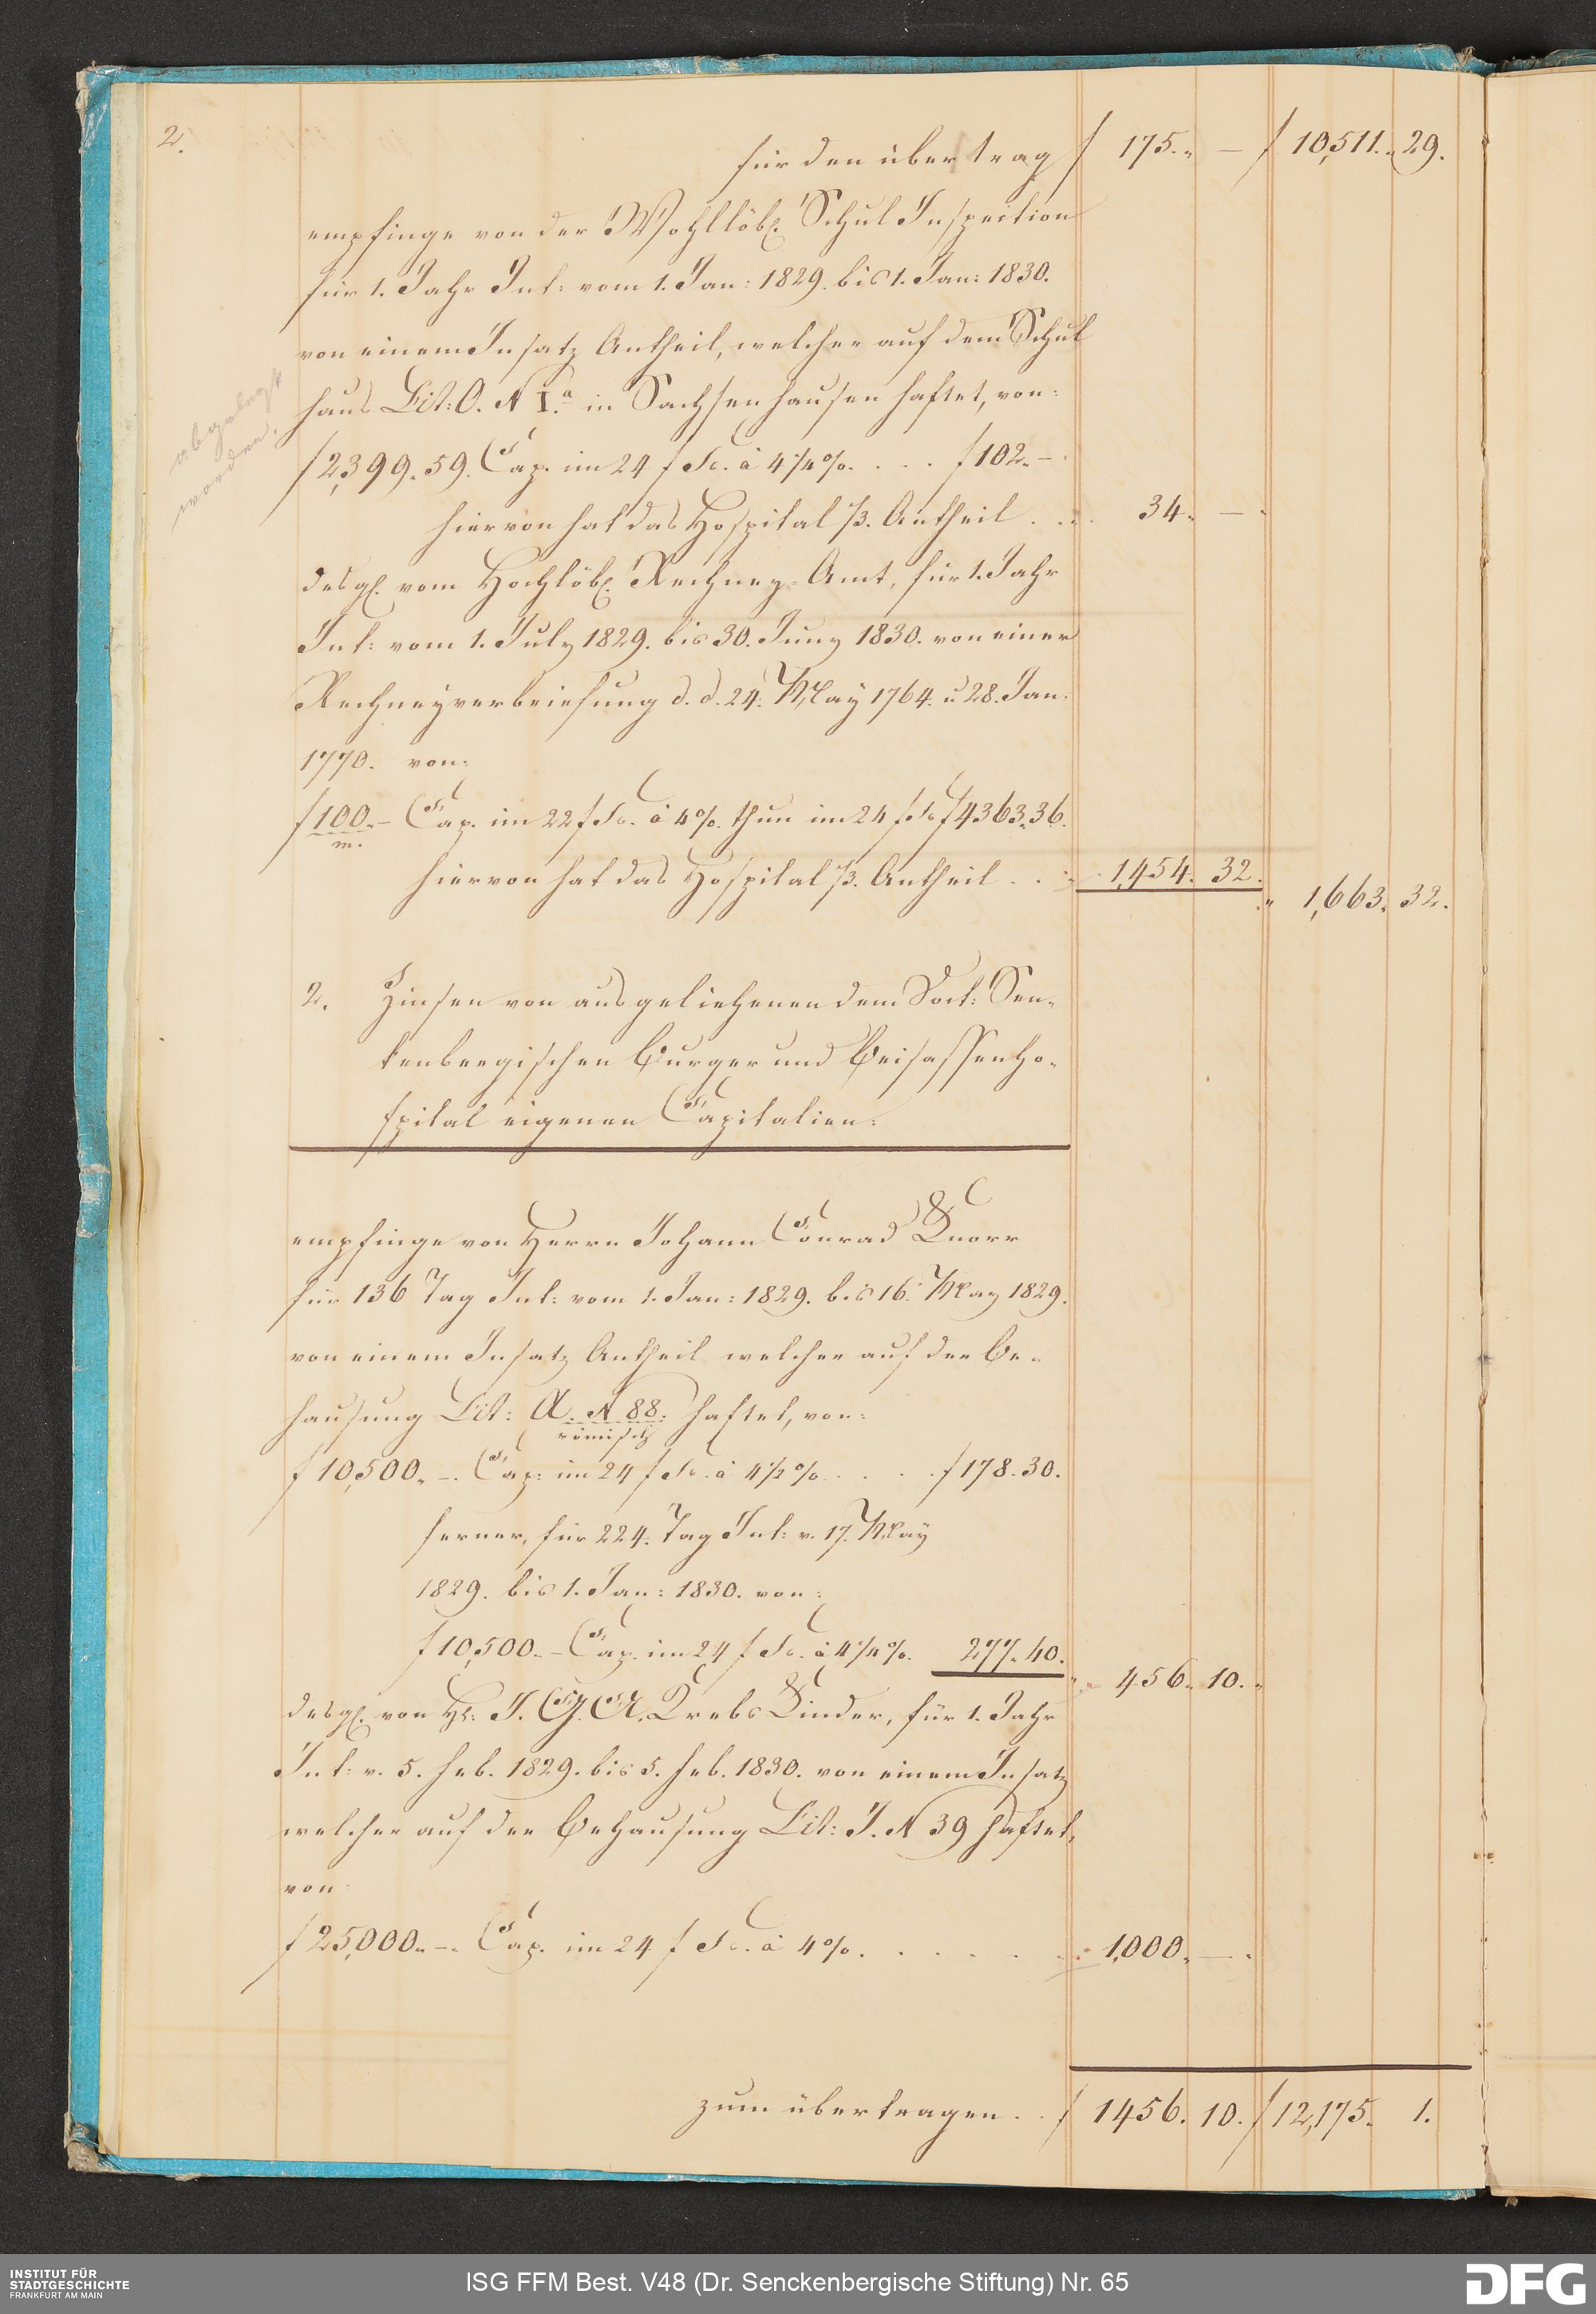 2.
für den übertrag f 175.„ — f 10,511.„ 29.
empfinge von der Wohllöbl. Schul Inspection
für 1. Jahr Int: vom 1. Jan: 1829. bis 1. Jan: 1830.
von einem Insatz Antheil, welcher auf dem Schul
haus Lit: O. N I.a in Sachsenhausen haftet, von:
f 2,399.„ 59. Cap. im 24 f Fs. à 4 1/4 %. . . . f 102.„ —.
abgelegt
worden.
hiervon hat das Hospital 1/3. Antheil . . . 34.„ — .
desgl. vom Hochlöbl. Rechney-Amt, für 1. Jahr
Int: vom 1. July 1829. bis 30. Juny 1830. von einer
Rechneyverbriefung d. d. 24. May 1764. u 28. Jan.
1770. von:
f 100.„ — Cap. im 22 f Fs. à 4 %. thun im 24 f Fs f 4363.„ 36.
m.
hiervon hat das Hospital 1/3. Antheil . . . 1,454. 32.
„ 1,663.„ 32.
2. Zinsen von ausgeliehenen dem Doct: Sen-
kenbergischen Burger und Beisassenho-
spital eigenen Capitalien:
empfinge von Herrn Johann Conrad Knorr
für 136 Tag Int: vom 1. Jan: 1829. bis 16. May 1829.
von einem Insatz Antheil welcher auf der Be-
hausung Lit: A. N 88. haftet, von:
römisch
f 10,500.„ —. Cap: im 24 f Fs. à 4 1/2 % . . . . f 178. 30.
ferner, für 224. Tag Int: v. 17. May
1829. bis 1. Jan: 1830. von:
f 10,500.„ — Cap. im 24 f Fs. à 4 1/4 %. 277.„ 40.
„ 456.„ 10.„
desgl. von Hr: J. G. A. Krebs Kinder, für 1. Jahr
Int: v. 5. Feb. 1829. bis 5. Feb. 1830. von einem Insatz
welcher auf der Behausung Lit: J. N 39 haftet,
von:
f 25,000.„ —. Cap. im 24 f Fs. à 4 %. . . . . . . 1,000.„ — .
zum übertragen . . f 1456. 10. f 12,175.„ 1.
INSTITUT FÜR
STADTGESCHICHTE
FRANKFURT AM MAIN
ISG FFM Best. V48 (Dr. Senckenbergische Stiftung) Nr. 65
DFG